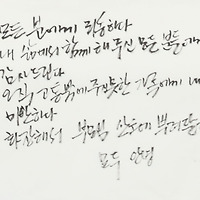 모든 분에게 죄송하다
내 삶에서 함께 해 주신 모든 분들에
감사드린다
오직 고통밖에 주지못한 가족에게 내
미안하다
화장해서 부모님 산소에 뿌려달
모두 안녕